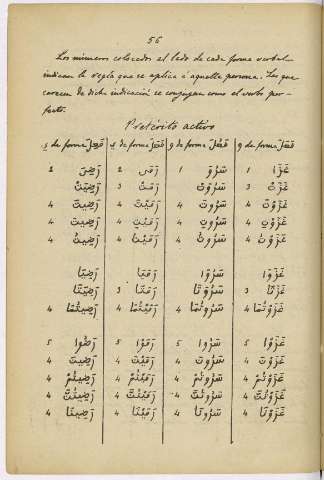 56
Los números colocados al lado de cada forma verbal
indican la regla que se aplica á aquella persona. Las que
carecen de dicha indicación se conjugan como el verbo per-
fecto.
Pretérito activo
ي de forma فَعِلَ ي de forma فَعَلَ و de forma فَعُلَ و de forma فَعَلَ
2 رَضِىَ 2 رَقَى 1 سَرُوَ 1 غَزَا
رَضِيَتْ 3 رَقَتْ سَرُوَتْ 3 غَزَتْ
4 رَضِيتَ 4 رَقَيْتَ 4 سَرُوتَ 4 غَزَوْتَ
4 رَضِيتِ 4 رَقَيْتِ 4 سَرُوتِ 4 غَزَوْتِ
4 رَضِيتُ 4 رَقَيْتُ 4 سَرُوتُ 4 غَزَوْتُ
رَضِيَا رَقَيَا سَرُوَا غَزَوَا
رَضِيَتَا 3 رَقَتَا سَرُوَتَا 3 غَزَتَا
4 رَضِيتُمَا 4 رَقَيْتُمَا 4 سَرُوتُمَا 4 غَزَوْتُمَا
5 رَضُوا 5 رَقَوْا 5 سَرُوا 5 غَزَوْا
4 رَضِينَ 4 رَقَيْنَ 4 سَرُونَ 4 غَزَوْنَ
4 رَضِيتُمْ 4 رَقَيْتُمْ 4 سَرُوتُمْ 4 غَزَوْتُمْ
4 رَضِيتُنَّ 4 رَقَيْتُنَّ 4 سَرُوتُنَّ 4 غَزَوْتُنَّ
4 رَضِينَا 4 رَقَيْنَا 4 سَرُونَا 4 غَزَوْنَا